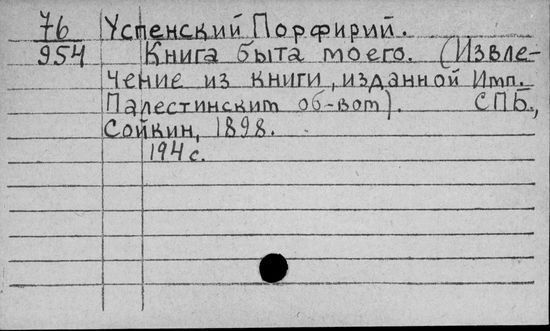 76 Успенский Порфирий.
954 Книга быта моего. (Извле-
чение из книги, изданной Имп.
Палестинским об-вом). СПБ.,
Сойкин, 1898.
194 с.